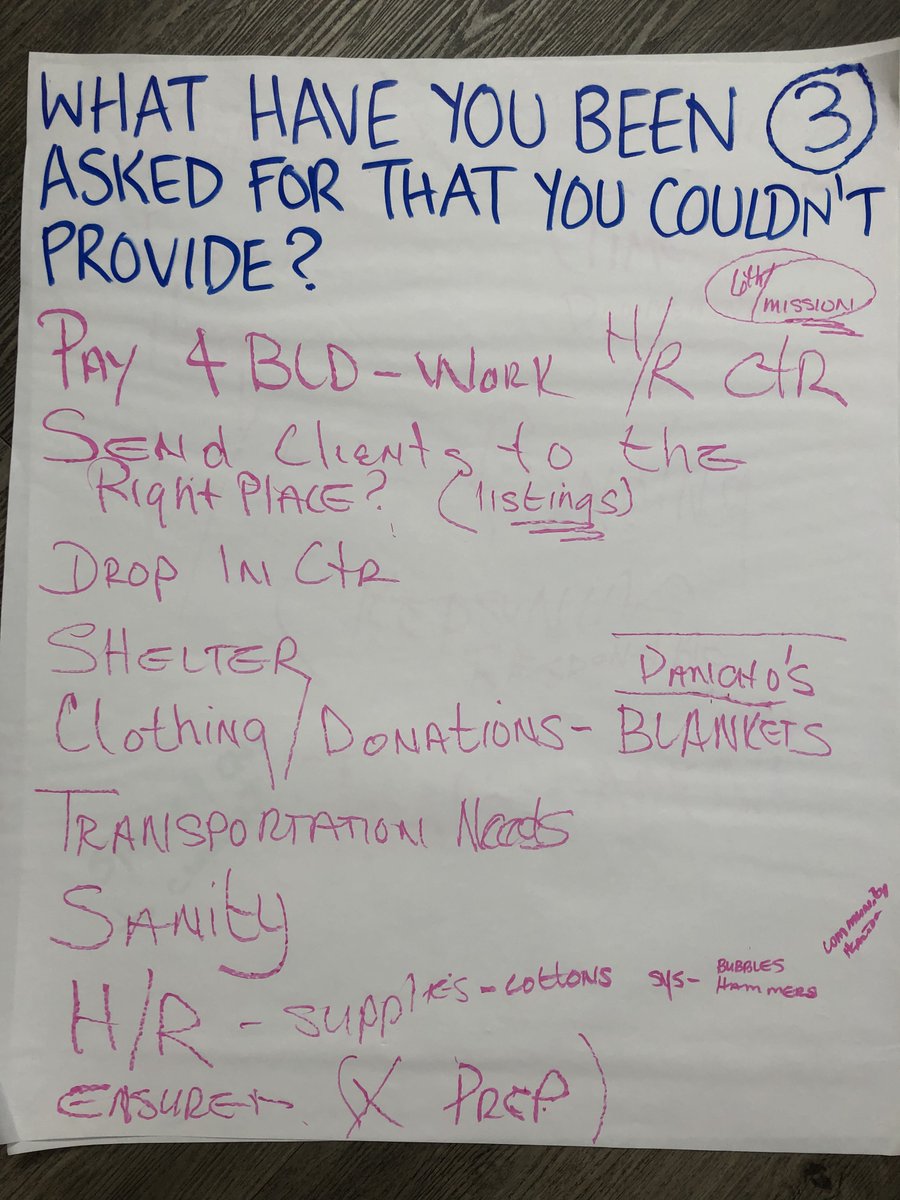 WHAT HAVE YOU BEEN 3
ASKED FOR THAT YOU COULDN'T
PROVIDE?
6th/MISSION
PAY 4 BLD - WORK H/R CtR
SEND Clients to the
Right PLACE? (listings)
DROP IN CtR
SHELTER
DANICHO'S
Clothing/DONATIONS - BLANKETS
TRANSPORTATION Needs
SANity
H/R - SUPPlies - cottons sys - BUBBLES
HAMMERS
ENSURE
(X PREP)